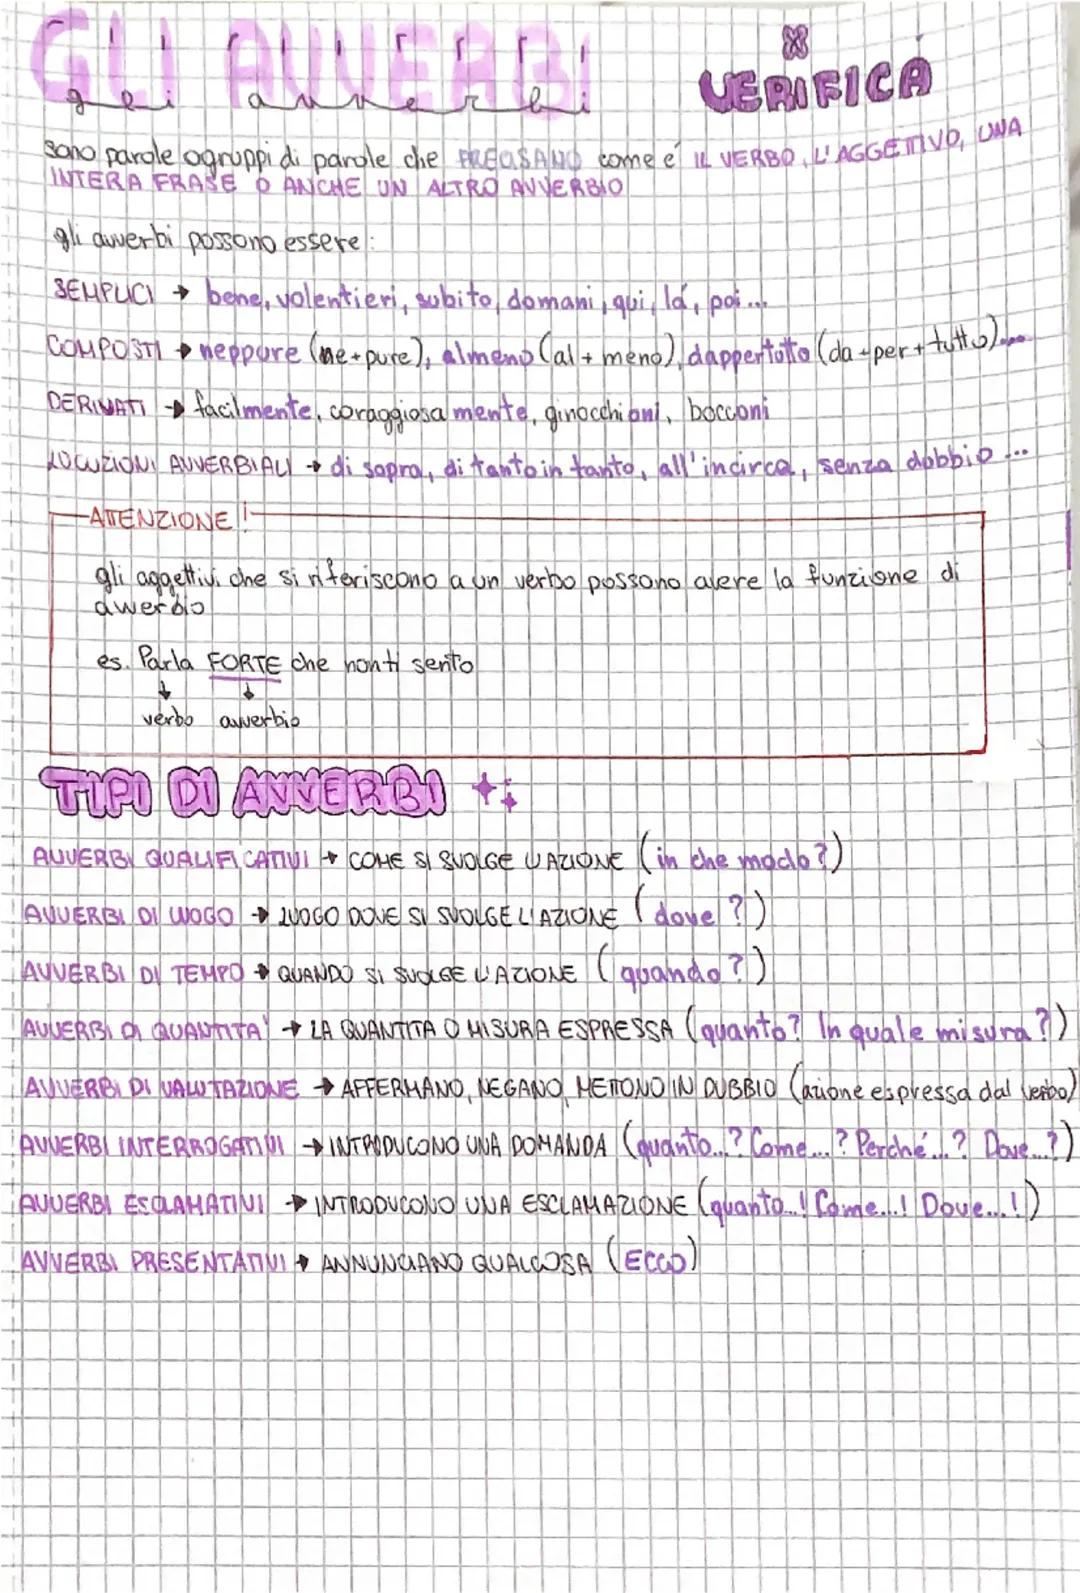 GLI AVVERBI
gli avverbi
VERIFICA
sono parole o gruppi di parole che PRECISANO come é IL VERBO, L'AGGETTIVO, UNA
INTERA FRASE O ANCHE UN ALTRO AVVERBIO
gli avverbi possono essere:
SEMPLICI → bene, volentieri, subito, domani, qui, lá, poi...
COMPOSTI → neppure (ne+pure), almeno (al+meno), dappertutto (da+per+tutto)...
DERIVATI → facilmente, coraggiosamente, ginocchioni, bocconi
LOCUZIONI AVVERBIALI → di sopra, di tanto in tanto, all'incirca, senza dubbio...
ATTENZIONE!
gli aggettivi che si riferiscono a un verbo possono avere la funzione di
avverbio
es. Parla FORTE che non ti sento
↓ ↓
verbo avverbio
TIPI DI AVVERBI
AVVERBI QUALIFICATIVI → COME SI SVOLGE L'AZIONE (in che modo?)
AVVERBI DI LUOGO → LUOGO DOVE SI SVOLGE L'AZIONE (dove?)
AVVERBI DI TEMPO → QUANDO SI SVOLGE L'AZIONE (quando?)
AVVERBI DI QUANTITA' → LA QUANTITA O MISURA ESPRESSA (quanto? In quale misura?)
AVVERBI DI VALUTAZIONE → AFFERMANO, NEGANO, METTONO IN DUBBIO (azione espressa dal verbo)
AVVERBI INTERROGATIVI → INTRODUCONO UNA DOMANDA (quanto...? Come...? Perché...? Dove...?)
AVVERBI ESCLAMATIVI → INTRODUCONO UNA ESCLAMAZIONE (quanto...! Come...! Dove...!)
AVVERBI PRESENTATIVI → ANNUNCIANO QUALCOSA (ECCO)